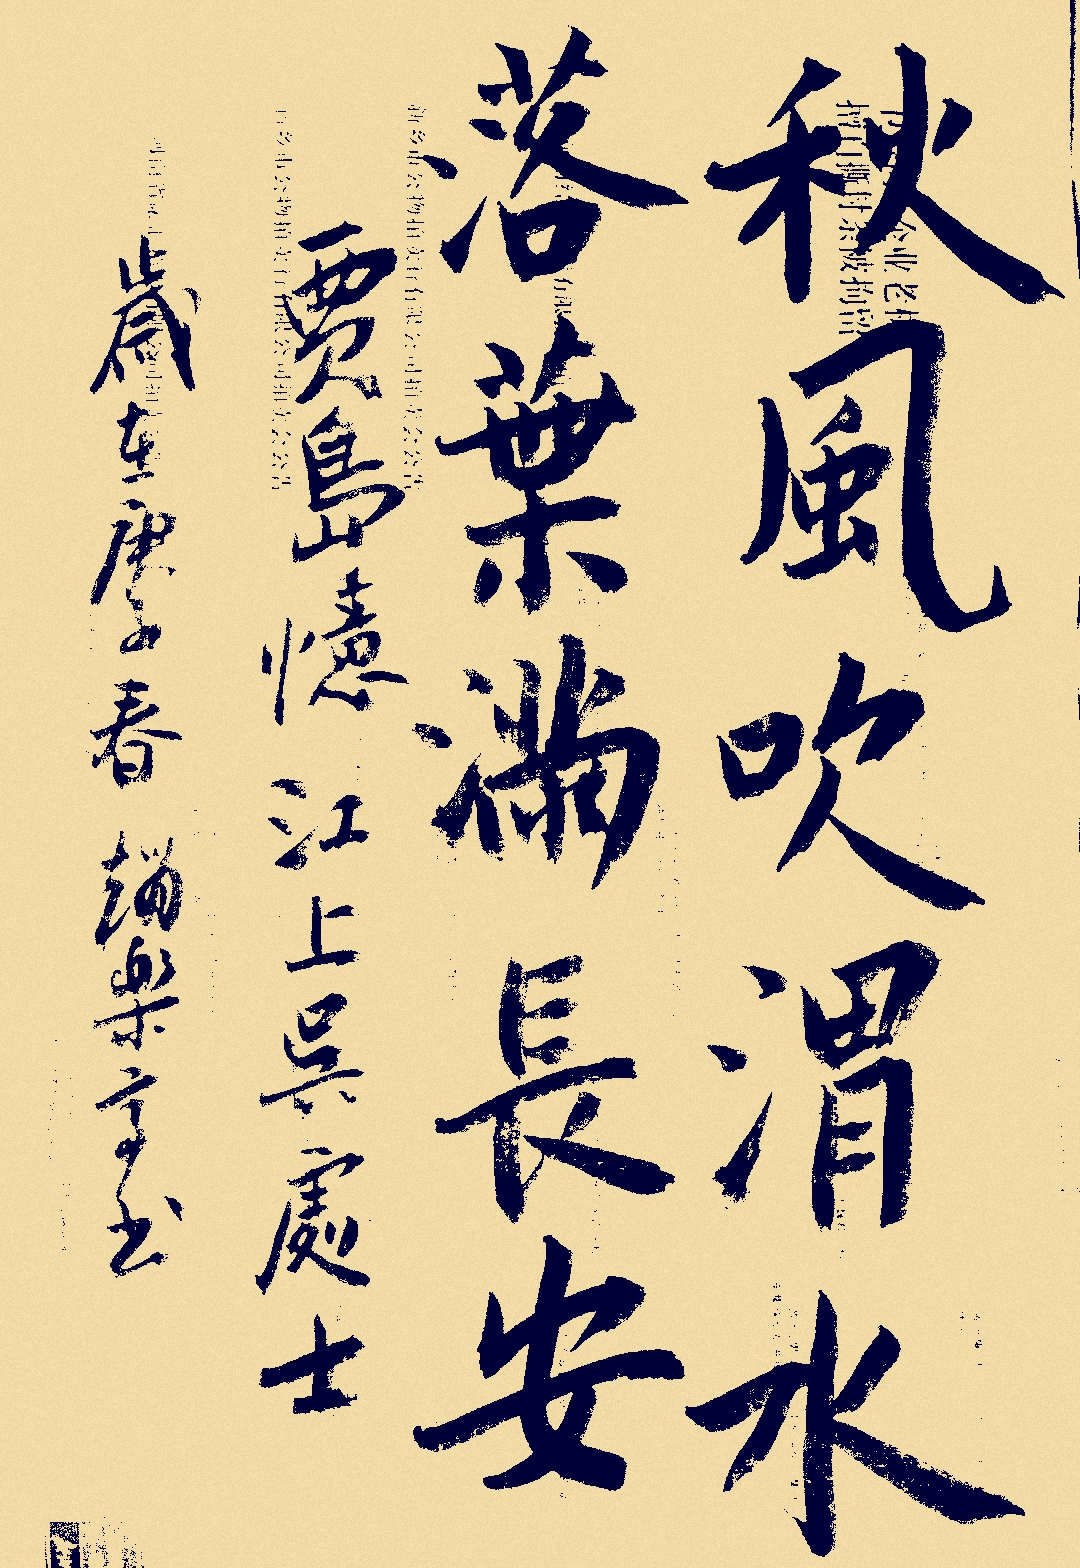 秋風吹渭水
落葉滿長安
賈島憶江上吳處士
歲在庚子春趙樂亭書